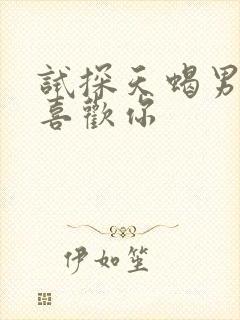 試探天蝎男
喜歡你
伊如笙